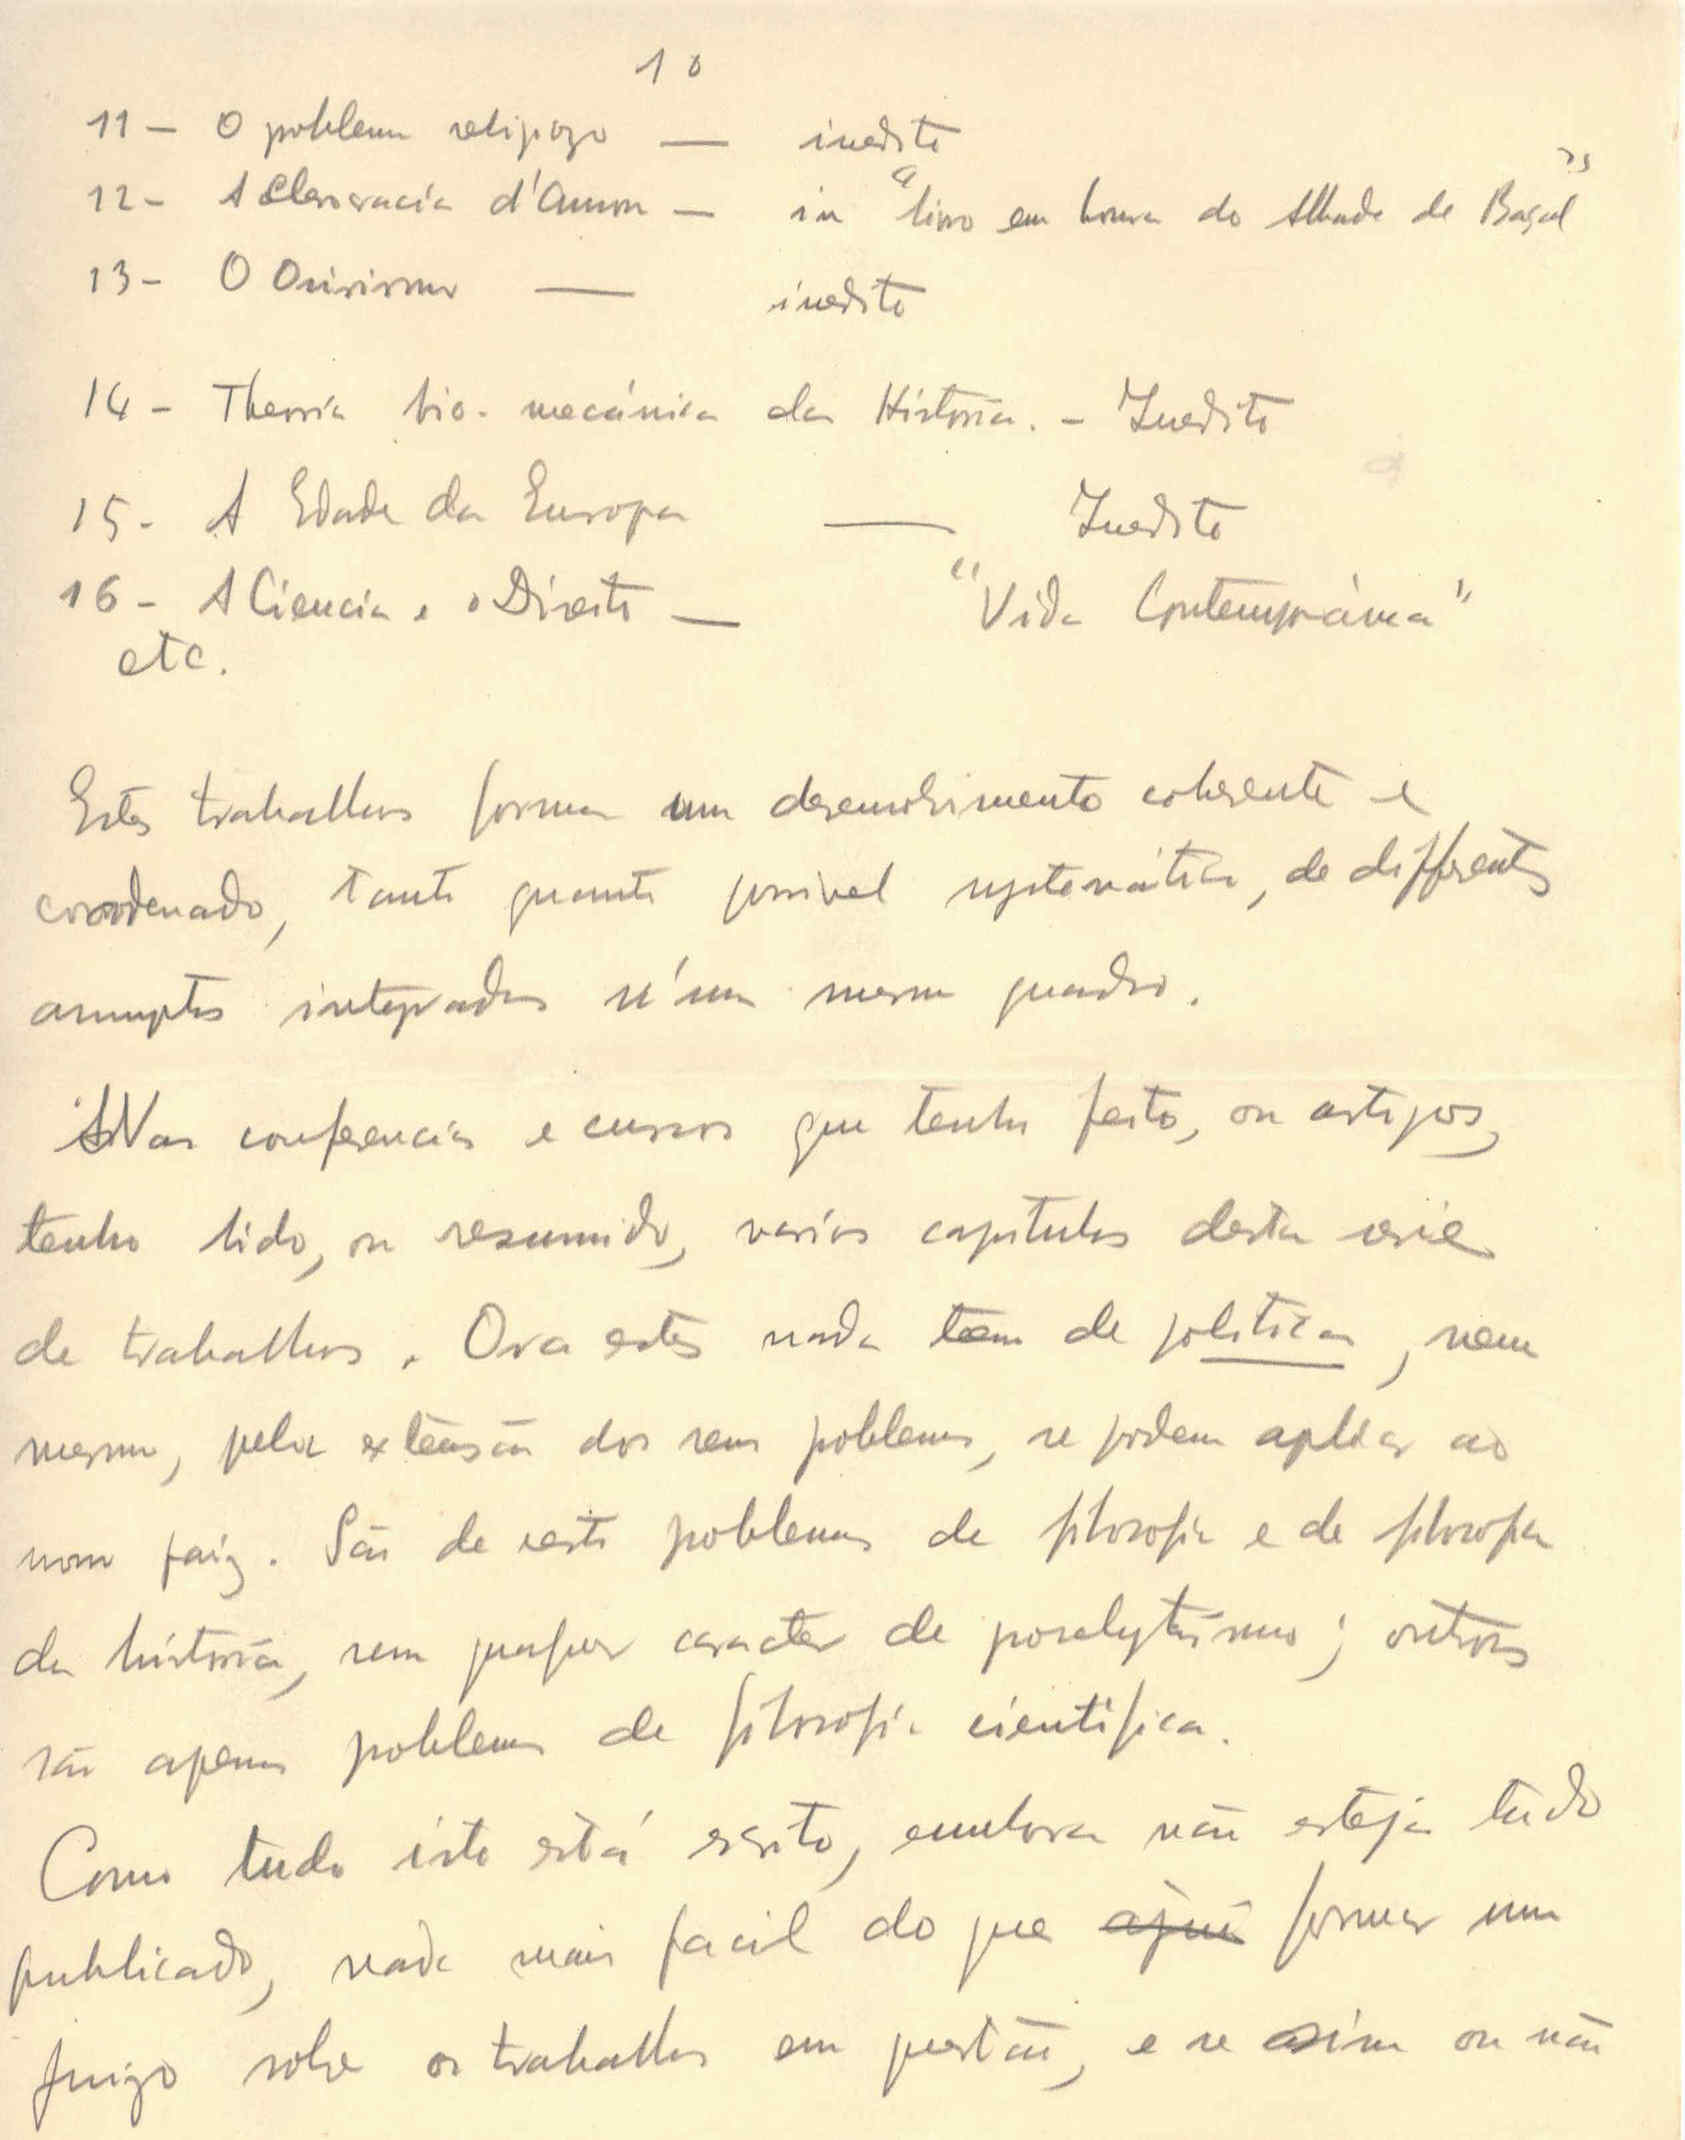 10
11 – O problema religiozo — inedito
12 – A Clerocracía d'Amon — in "livro em honra do Abbade de Baçal"
13 – O Osirismo — inedito
14 – Theoría bio-mecánica da História. – Inedito
15 – A Edade da Europa — Inedito
16 – A Ciencia e o Direito — "Vida Contemporánea"
etc.
Estes trabalhos formam um desenvolvimento coherente e
coordenado, tanto quanto possivel systemático, de differentes
assumptos integrados n'um mesmo quadro.
Nas conferencias e cursos que tenho feito, ou artigos,
tenho lido, ou resumido, varios capitulos desta serie
de trabalhos. Ora estes nada teem de politica, nem
mesmo, pela extensão dos seus problemas, se podem aplicar ao
nosso paiz. São de resto problemas de filosofia e de filosofia
da história, sem qualquer caracter de proselytismo; outros
são apenas problemas de filosofia cientifica.
Como tudo isto está escrito, embora não esteja tudo
publicado, nada mais facil do que aqui formar um
juizo sobre os trabalhos em questão, e se assim ou não